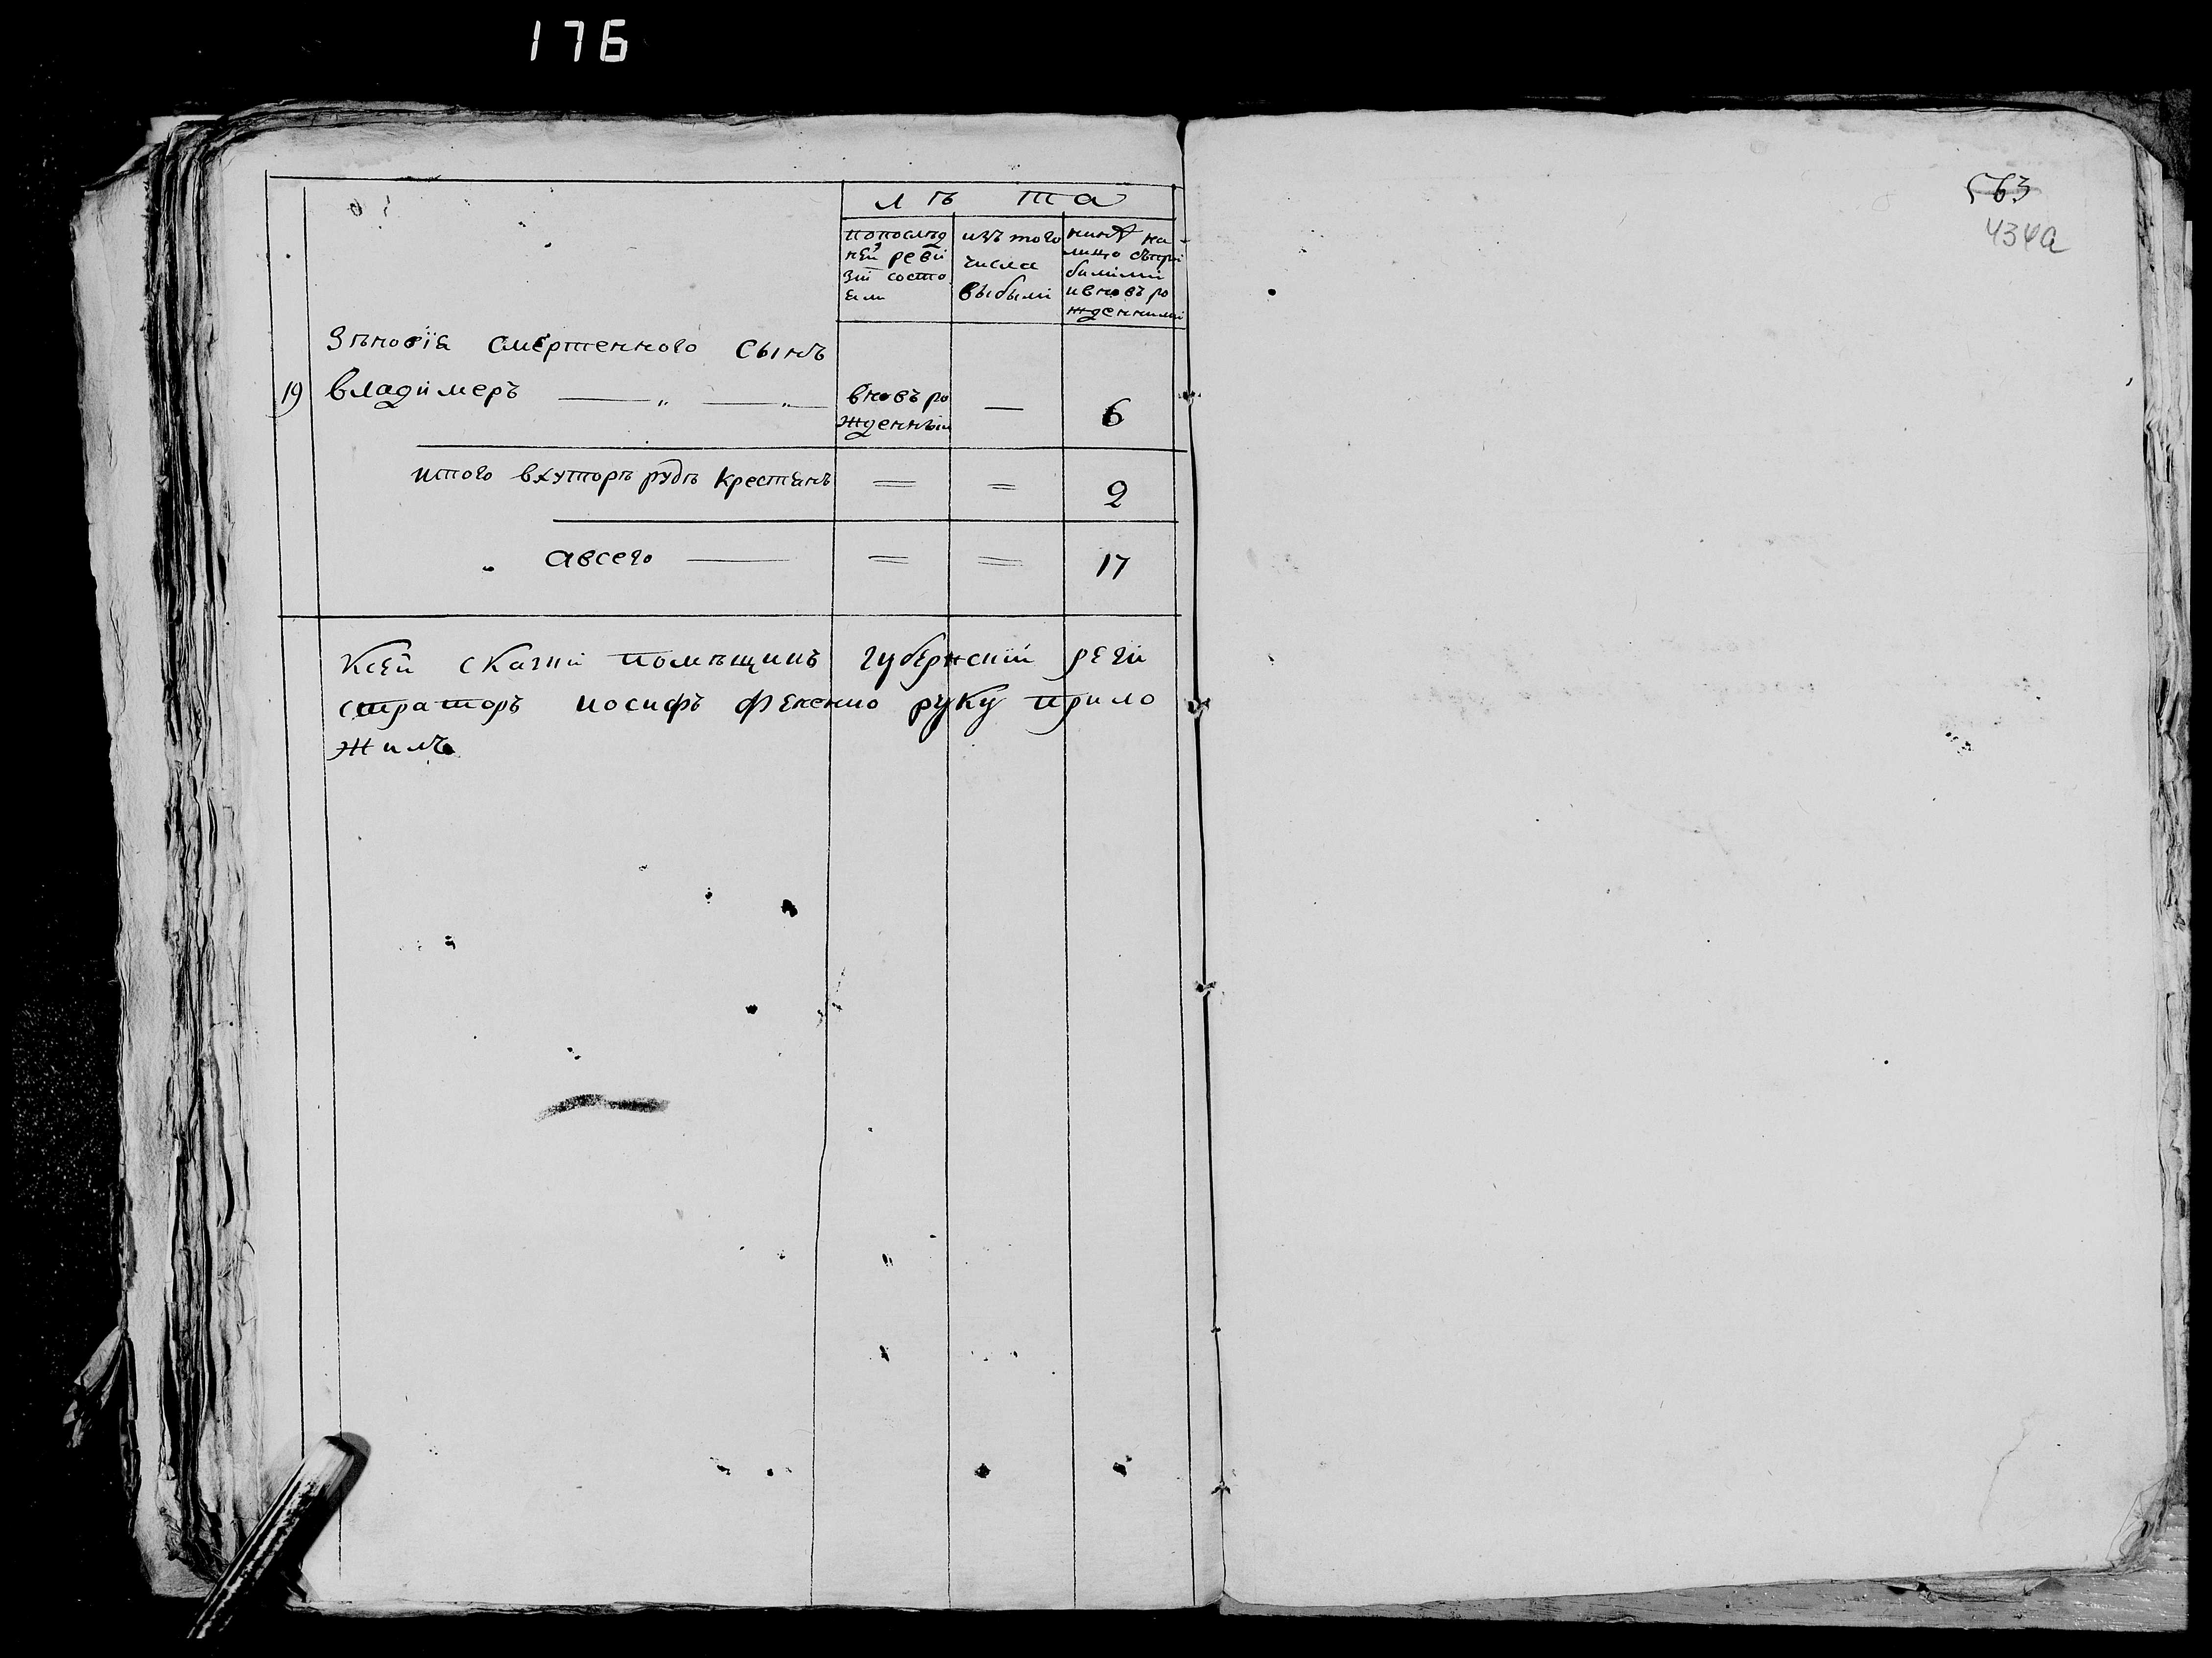 176
лѣта
попослѣд
ней реви
зіи состо
яли
изъ того
числа
выбыли
нынѣ на
лицо съпри
былими
ивновъ ро
жденними
Зѣновія Смертенного Сынъ
19 владимеръ — „ — „ — вновъ ро
жденный — 6
итого вхуторѣ рудѣ крестянъ = = 2
авсего — = = 17
Ксей сказки помѣщикъ губернский реги
страторъ иосифъ Фененко руку прило
жилъ
563
434а